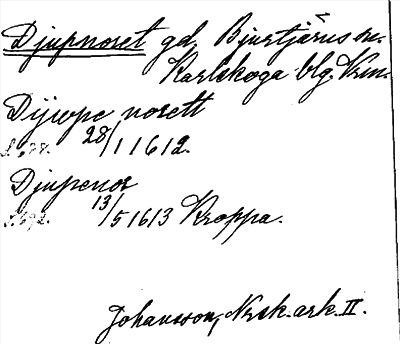 Djupnoret gd, Bjurtjärns sn.
Karlskoga blg. Vrm.
Diiwpe norett
28/1 1612.
Djupenor
13/5 1613 Kroppa.
Johansson, Norsk. ark. II.